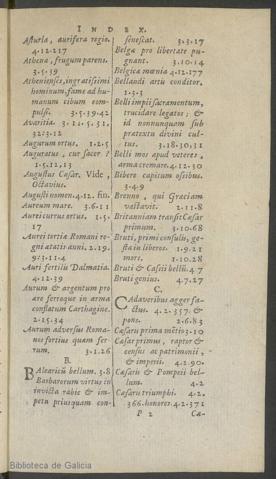 INDEX.
Asturia, aurifera regio.
4.12.217
Athena, frugum parens.
3.5.39
Athenienses, ingratissimi
hominum. fame ad hu-
manum cibum com-
pulsi. 3.5.39.42
Avaritia. 3.12.5.31.
32:3.12
Augurum ortus. 1.2.5
Auguratus, cur sacer?
1.5.12,13
Augustus Cæsar. Vide,
Octavius.
Augusti nomen. 4.12. fin.
Aureum mare. 3.6.11
Aurei currus ortus. 1.5.
17
Aurei tertia Romani re-
gni ætatis anni. 2.19.
9:3.11.4
Auri fertilis Dalmatia.
4.12.39
Aurum & argentum pro
ære ferroque in arma
conflatum Carthagine.
2.15.34
Aurum adversus Roma-
nos fortius quam fer-
rum. 3.1.26
B.
Balearicũ bellum. 3.8
Barbarorum virtus in
invicta rabie & im-
petu priusquam con-
senescat. 3.3.17
Belgæ pro libertate pu-
gnant. 3.10.14
Belgica mœnia 4.12.177
Bellandi artis conditor.
1.3.3
Belli impii sacramentum,
trucidare legatos; &
id nonnunquam sub
prætextu divini cul-
tus. 3.18.30,31
Belli mos apud veteres,
arma cremare. 4.12.30
Bibere capitum ossibus.
3.4.9
Brenno, qui Græciam
vastavit. 2.11.8
Britanniam transit Cæsar
primum. 3.10.68
Bruti, primi consulis, ge-
sta in liberos. 1.9.21
mors. 1.10.28
Bruti & Cassii bellũ. 4.7
Bruti genius. 4.7.27
C.
Cadaveribus agger fa-
ctus. 4.2.357. & po-
ns. 2.6.83
Cæsaris prima metio 3.10
Cæsar primus, raptor &
census ac patrimonii,
& imperii. 4.2.90.
Cæsaris & Pompeii bel-
lum. 4.2
Cæsaris triumphi. 4.2.
366. honores. 4.2.371
P 2 Cæ-
Biblioteca de Galicia